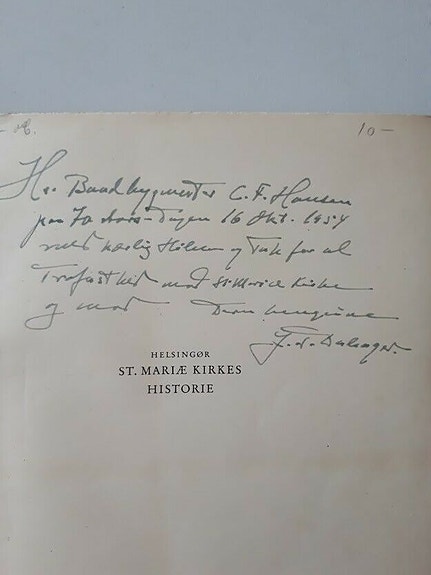 10 –
Hr. Baadbygmester C. F. Hansen
paa 70 Aars-Dagen 16 Okt. 1954
med kærlig Hilsen og Tak for al
Trofasthed mod St. Mariæ Kirke
og mod Deres hengivne
HELSINGØR
ST. MARIÆ KIRKES
HISTORIE